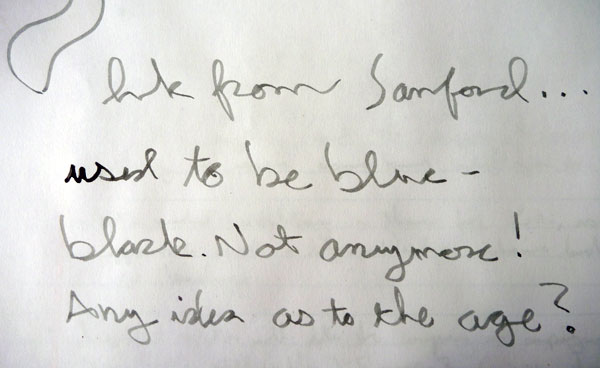 Ink from Sanford...
used to be blue-
black. Not anymore!
Any idea as to the age?